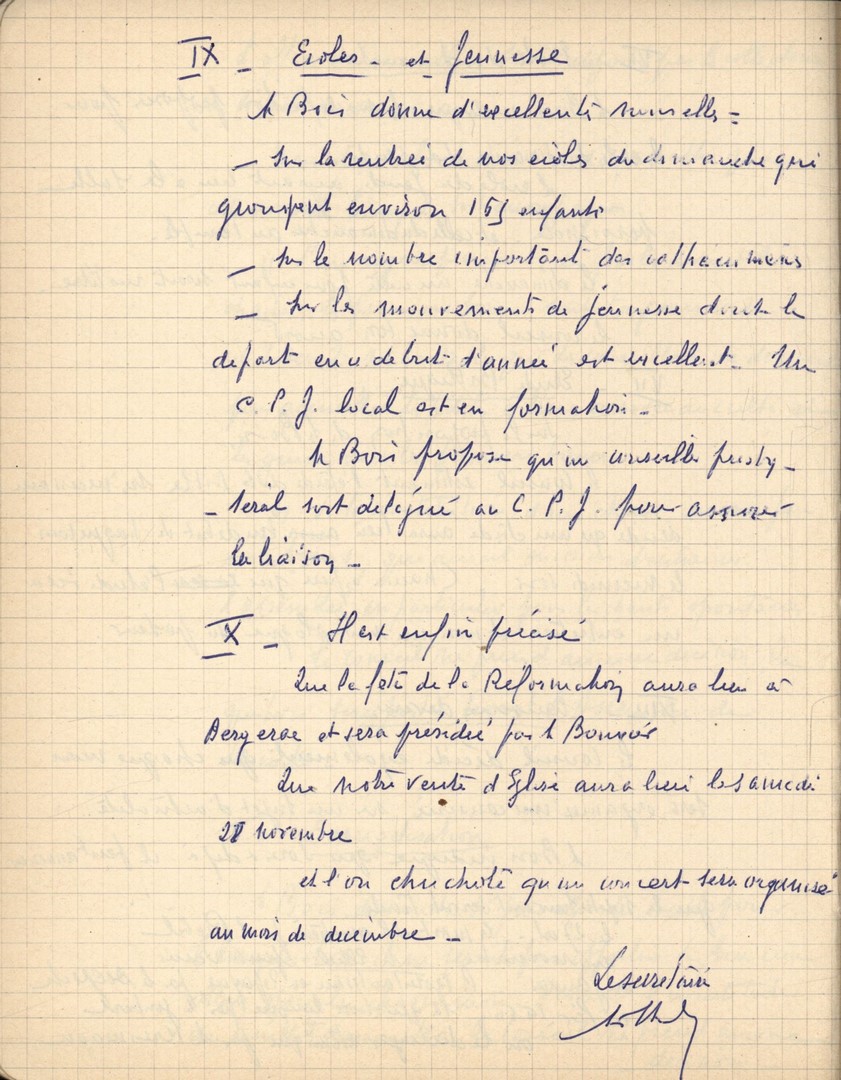 IX - Ecoles - et Jeunesse
M Bois donne d'excellentes nouvelles =
- Sur la rentrée de nos écoles du dimanche qui
groupent environ 165 enfants
- Sur le nombre important des cathécumènes
- Sur les mouvements de jeunesse dont le
départ en ce début d'année est excellent. Un
C. P. J. local est en formation -
M Bois propose qu'un conseiller presby-
- téral soit délégué au C. P. J. pour assurer
la liaison -
X - Il est enfin précisé
Que la fête de la Réformation aura lieu à
Bergerac et sera présidée par M
Que notre vente d'Eglise aura lieu le samedi
novembre
et l'on chuchote qu'un concert sera organisé
au mois de décembre -
Le secrétaire